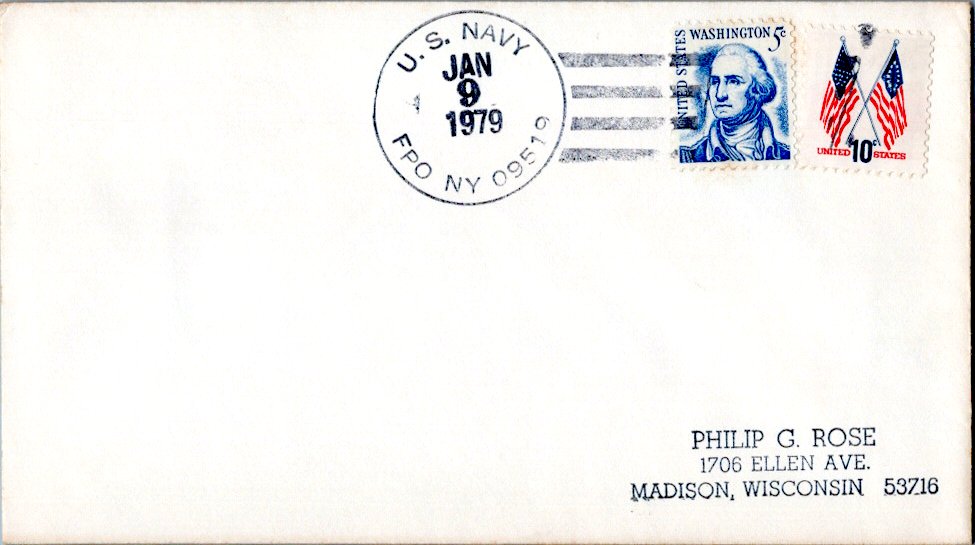 U. S. NAVY
JAN
9
1979
FPO NY 09519
UNITED STATES
WASHINGTON 5c
UNITED 10c STATES
PHILIP G. ROSE
1706 ELLEN AVE.
MADISON, WISCONSIN 53716